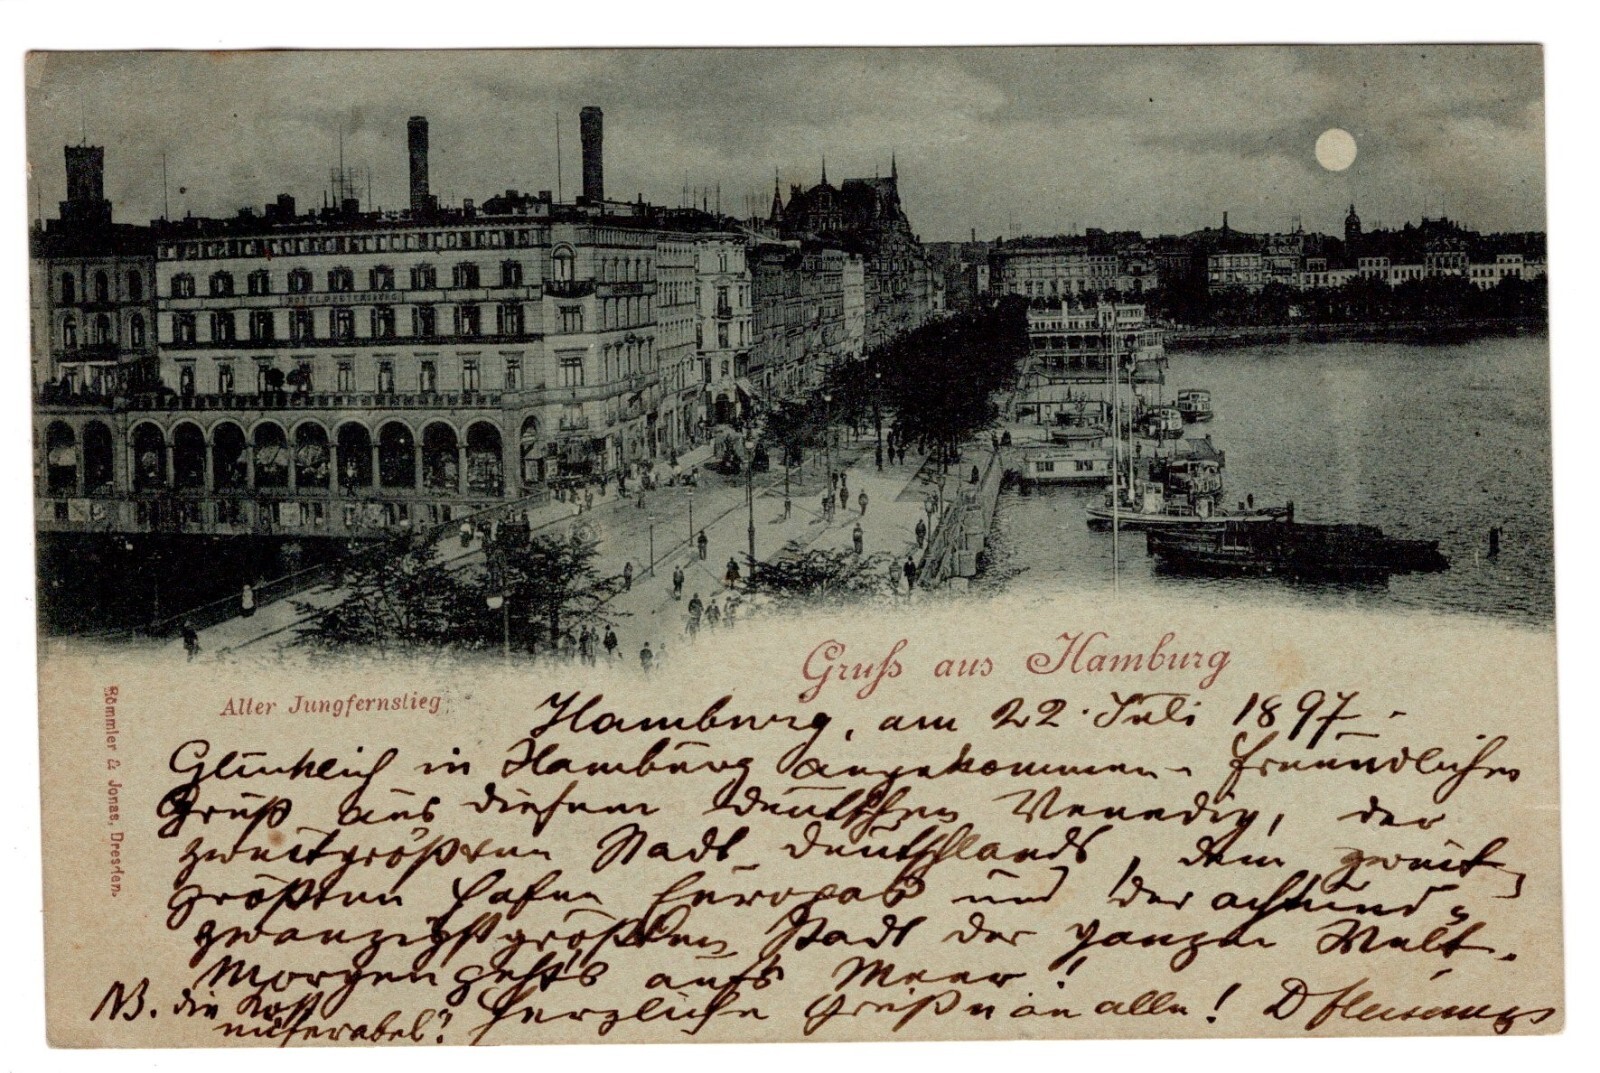 HOTEL ST PETERSBURG
Gruß aus Hamburg
Alter Jungfernstieg
Römmler & Jonas, Dresden.
Hamburg, am 22. Juli 1897.
Glücklich in Hamburg angekommen. Freundlichen
Gruß aus diesem deutschen Venedig, der
zweitgrößten Stadt Deutschlands, dem zweit-
größten Hafen Europas und der achtund-
zwanzigstgrößten Stadt der ganzen Welt.
Morgen geht's aufs Meer!
Herzliche Grüße an alle!
NB. die Kost
miserabel!